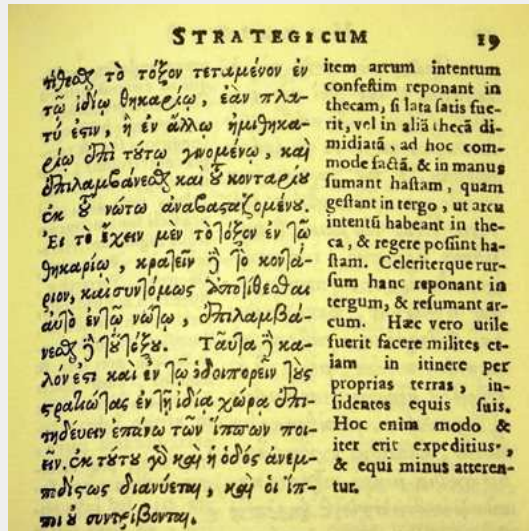 STRATEGICUM 19
τίθεσθαι τὸ τόξον τεταμένον ἐν
τῶ ἰδίῳ θηκαρίῳ, ἐὰν πλα-
τύ ἐστιν, ἢ ἐν ἄλλῳ ἡμιθηκα-
ρίῳ ἐπὶ τούτῳ γινομένῳ, καὶ
ἐπιλαμβάνεσθαι καὶ τοῦ κονταρίου
ἐκ τοῦ νώτου ἀναβασταζομένου.
Εἰ τὸ ἔχειν μὲν τὸ τόξον ἐν τῷ
θηκαρίῳ, κρατεῖν δὲ τὸ κοντά-
ριον, καὶ συντόμως ἀποτίθεσθαι
αὐτὸ ἐν τῷ νώτῳ, ἐπιλαμβά-
νεσθαι δὲ τοῦ τόξου. Ταῦτα δὲ κα-
λόν ἐστι καὶ ἐν τῷ ὁδοιπορεῖν τοὺς
στρατιώτας ἐν τῇ ἰδίᾳ χώρᾳ ἐπι-
τηδεύειν ἐπάνω τῶν ἵππων ποι-
εῖν. ἐκ τούτου γὰρ καὶ ἡ ὁδὸς ἀνεμ-
ποδίστως διανύεται, καὶ οἱ ἵπ-
ποι οὐ συντρίβονται.
item arcum intentum
confestim reponant in
thecam, si lata satis fue-
rit, vel in aliā thecā di-
midiatā, ad hoc com-
mode factā. & in manus
sumant hastam, quam
gestant in tergo, ut arcū
intentū habeant in the-
ca, & regere possint ha-
stam. Celeriterque rur-
sum hanc reponant in
tergum, & resumant ar-
cum. Hæc vero utile
fuerit facere milites et-
iam in itinere per
proprias terras, in-
sidentes equis suis.
Hoc enim modo &
iter erit expeditius,
& equi minus atteren-
tur.